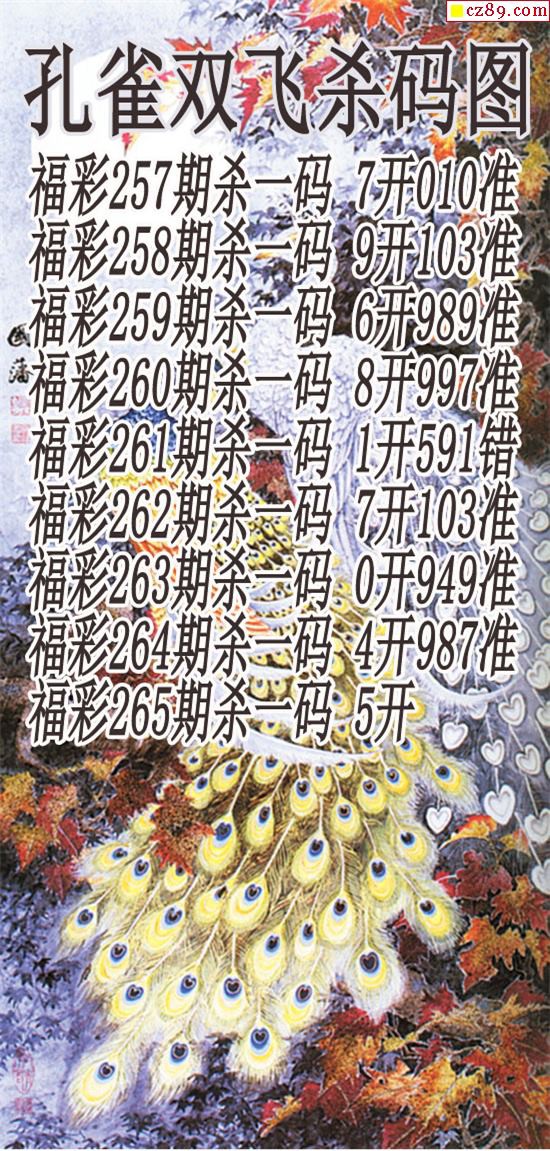 cz89.com
孔雀双飞杀码图
福彩257期杀一码 7开010准
福彩258期杀一码 9开103准
福彩259期杀一码 6开989准
福彩260期杀一码 8开997准
福彩261期杀一码 1开591错
福彩262期杀一码 7开103准
福彩263期杀一码 0开949准
福彩264期杀一码 4开987准
福彩265期杀一码 5开